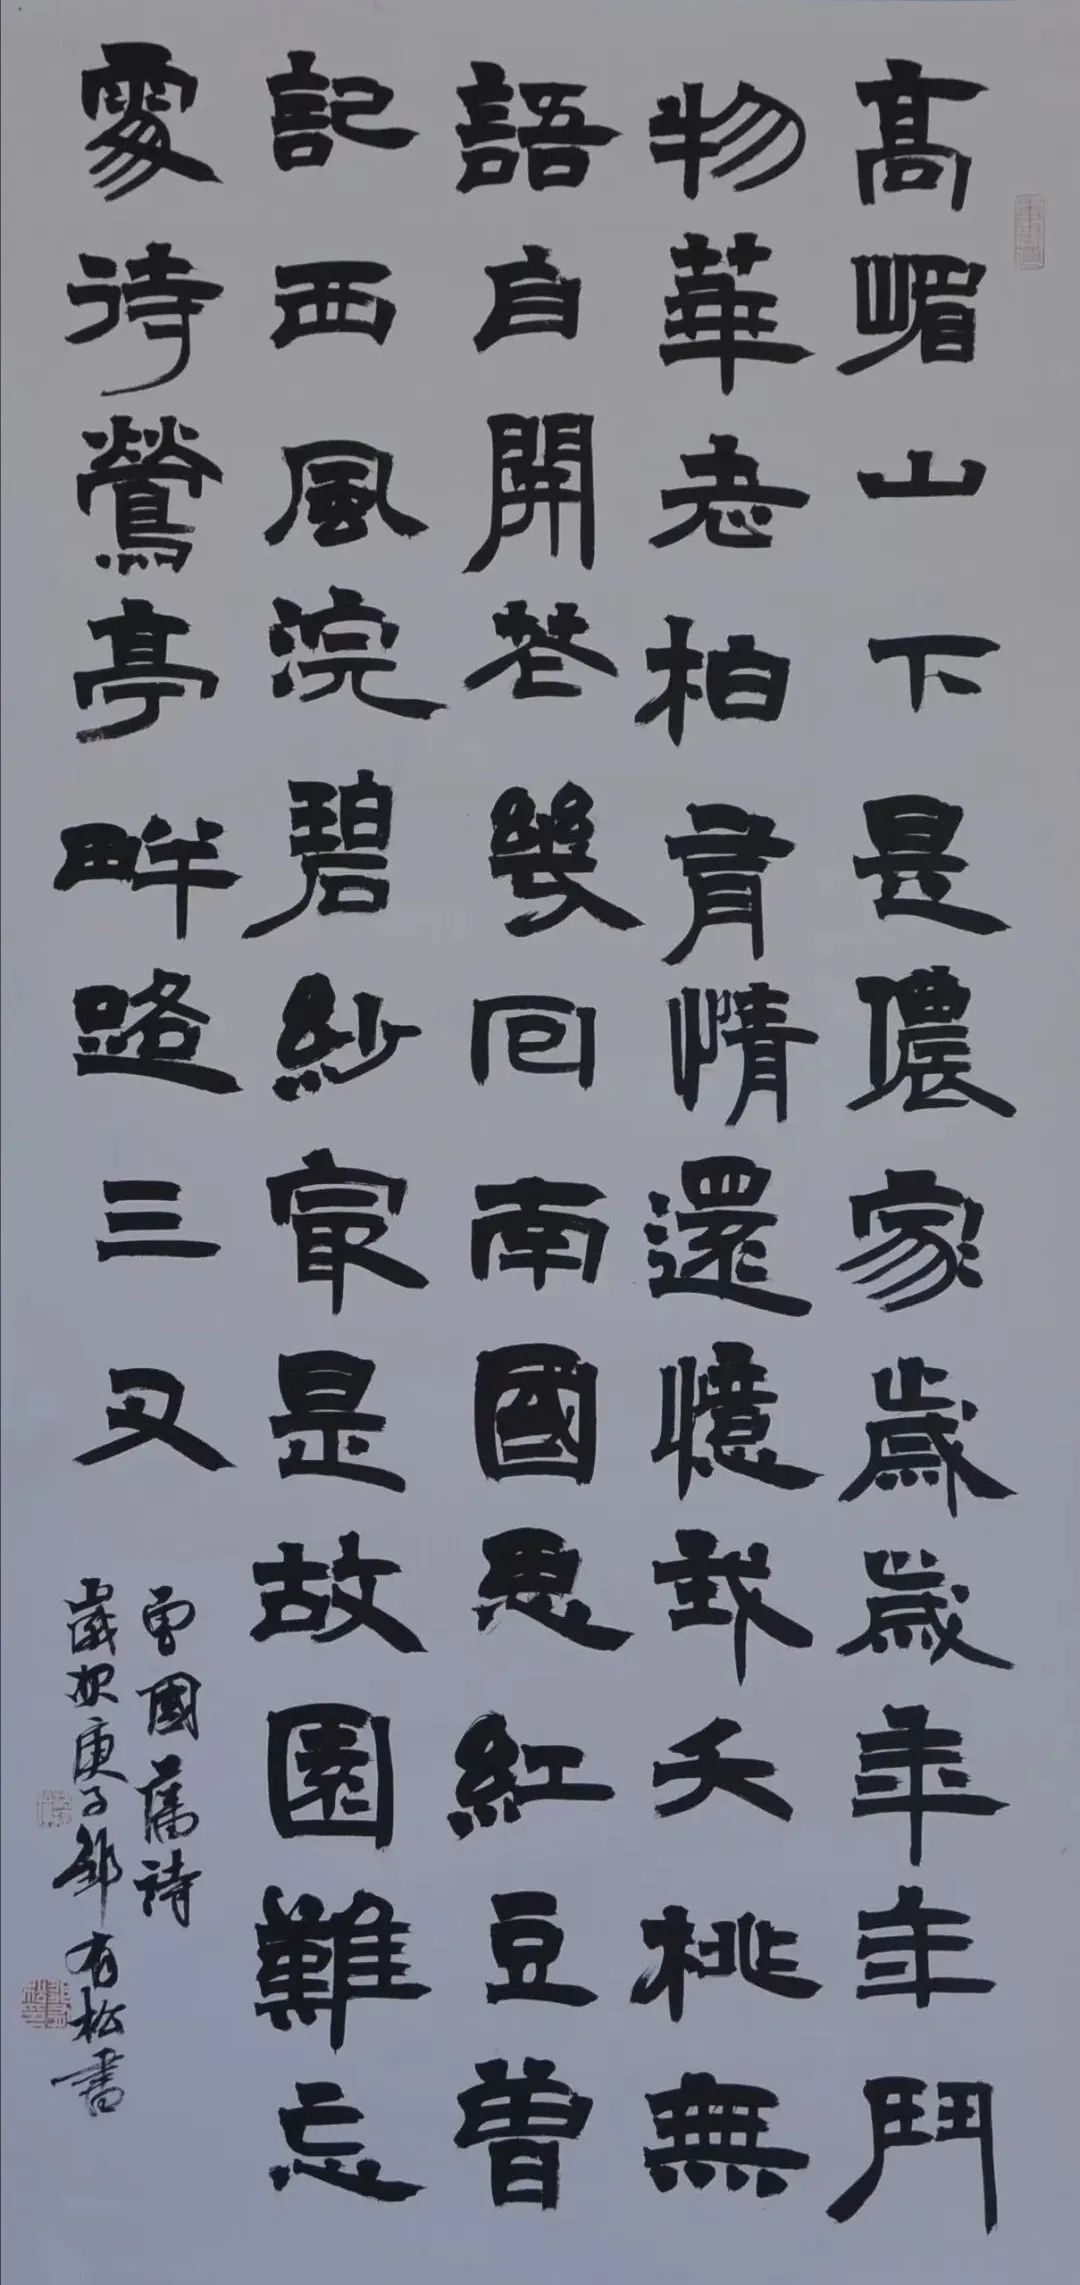 高嵋山下是儂家歲歲年年鬥
物華老柏有情還憶我夭桃無
語自開花幾回南國思紅豆曾
記西風浣碧紗最是故園難忘
處待鶯亭畔路三叉
曾國藩詩
歲次庚子鄒有松書